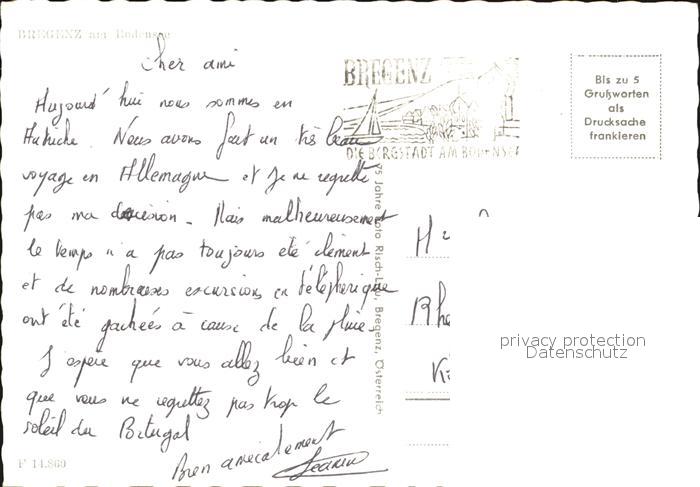 BREGENZ am Bodensee
Cher ami
Aujourd'hui nous sommes en
Autriche. Nous avons fait un très beau
voyage en Allemagne et je ne regrette
pas ma décision. Mais malheureusement
le temps n'a pas toujours été clément
et de nombreuses excursions en téléphérique
ont été gachées à cause de la pluie.
J'espère que vous allez bien et
que vous ne regrettez pas trop le
soleil du Portugal
Bien amicalement
F 14.860
BREGENZ
DIE BERGSTADT AM BODENSEE
Bis zu 5
Grußworten
als
Drucksache
frankieren
75 Jahre Foto Risch-Lau, Bregenz, Österreich
privacy protection
Datenschutz